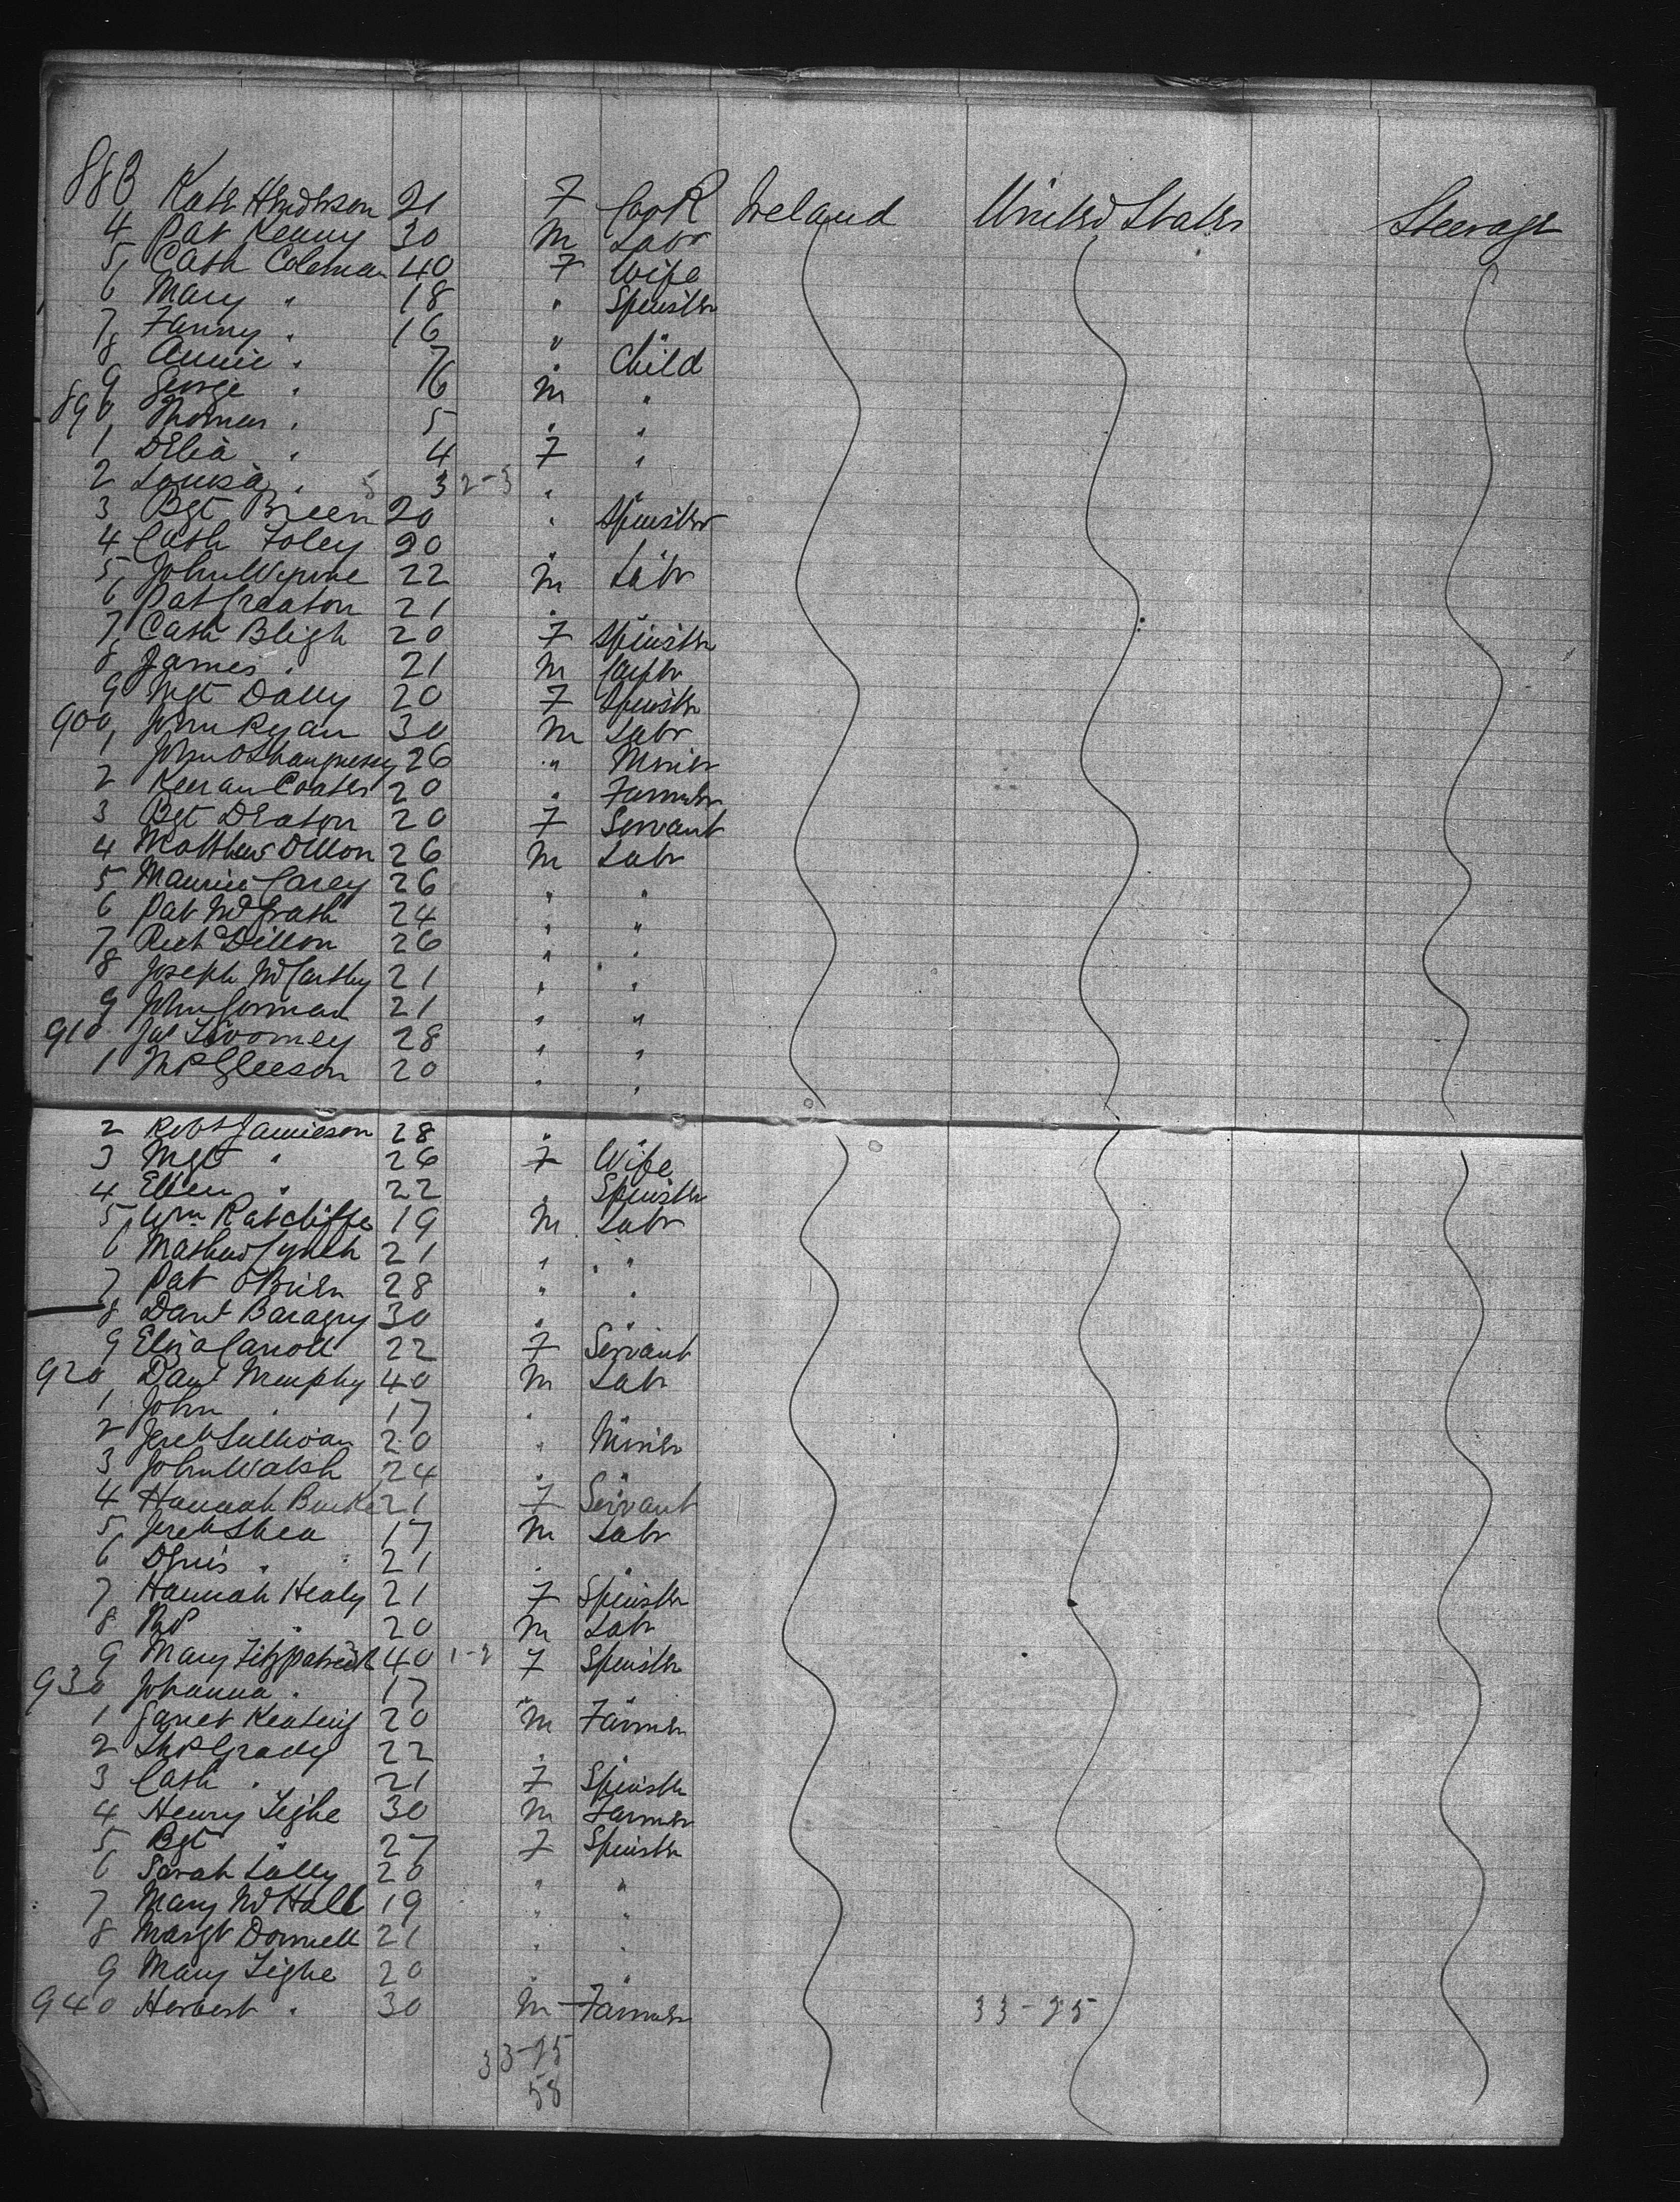 883 Kate Hendrson 21 F Cook Ireland United States Steerage
4 Pat Kenny 30 M Labr
5 Cath Coleman 40 F Wife
6 Mary " 18 " Spinster
7 Fanny " 16 " "
8 Annie " 7 " Child
9 George " 6 M "
890 Thomas " 5 " "
1 Delia " 4 F "
2 Louisa " 3 2-3 " "
3 Bgt Breen 20 " Spinster
4 Cath Foley 20 " "
5 John 22 M Labr
6 Pat Creaton 21 " "
7 Cath Bligh 20 F Spinster
8 James " 21 M
9 Mgt Dally 20 F Spinster
900 John Ryan 30 M Labr
1 John OShaugnessy 26 " Miner
2 Keeran Coates 20 " Farmer
3 Bgt Deaton 20 F Servant
4 Matthew Dillon 26 M Labr
5 Maurice Carey 26 " "
6 Pat McGrath 24 " "
7 Richd Dillon 26 " "
8 Joseph McCarthy 21 " "
9 John Gorman 21 " "
910 Jas Twomey 28 " "
1 Ml Gleeson 20 " "
2 Robt Jamieson 28 " "
3 Mgt " 26 F Wife
4 Ellen " 22 " Spinster
5 Wm Ratcliffe 19 M Labr
6 Mathew Lynch 21 " "
7 Pat OBrien 28 " "
8 Danl Baragry 30 " "
9 Eliza Carroll 22 F Servant
920 Danl Murphy 40 M Labr
1 John " 17 " "
2 Jereh Sullivan 20 " Miner
3 John Walsh 24 " "
4 Hannah Burke 21 F Servant
5 Jereh Shea 17 M Labr
6 Denis " 21 " "
7 Hannah Healy 21 F Spinster
8 " 20 M Labr
9 Mary Fitzpatrick 40 1-2 F Spinster
930 Johanna " 17 " "
1 Garret Keating 20 M Farmer
2 Thos Grady 22 " "
3 Cath " 21 F Spinster
4 Henry Tighe 30 M Farmer
5 Bgt " 27 F Spinster
6 Sarah Lally 20 " "
7 Mary McHale 19 " "
8 Margt Donnell 21 " "
9 Mary Tighe 20 " "
940 Herbert " 30 M Farmer 33-25
33-25
58